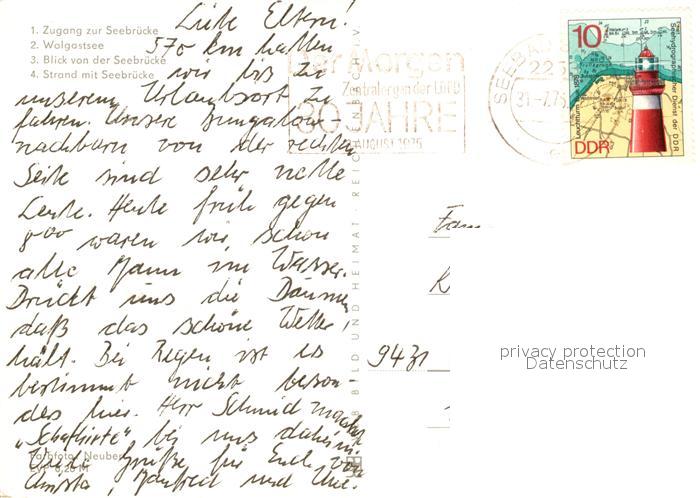 1. Zugang zur Seebrücke
2. Wolgastsee
3. Blick von der Seebrücke
4. Strand mit Seebrücke
Liebe Eltern!
570 km hatten
wir bis zu
unserem Urlaubsort zu
fahren. Unsere Bungalow-
nachbarn von der rechten
Seite sind sehr nette
Leute. Heute früh gegen
8⁰⁰ waren wir schon
alle Mann im Wasser.
Drückt uns die Daumen,
daß das schöne Wetter
hält. Bei Regen ist es
bestimmt nicht beson-
ders hier. Herr Schmid macht
"Schafhirte" bei uns daheim.
Viele Grüße für Euch von
Christa, Manfred und
Farbfoto: Neubert
EVP 0,20 M
BILD UND HEIMAT REICHENBACH
Der Morgen
Zentralorgan der LDPD
30 JAHRE
AUGUST 1975
SEEBAD
31.-7.75
10
Seehydrographischer Dienst der DDR
Leuchtturm
DDR
Fam
K
9431
privacy protection
Datenschutz